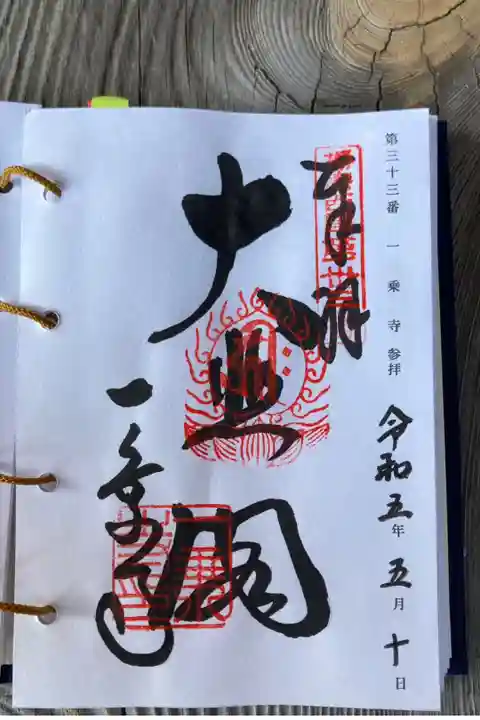 第三十三番 一乗寺 参拝 令和五年五月十日
奉拝
大悲閣
一乗寺